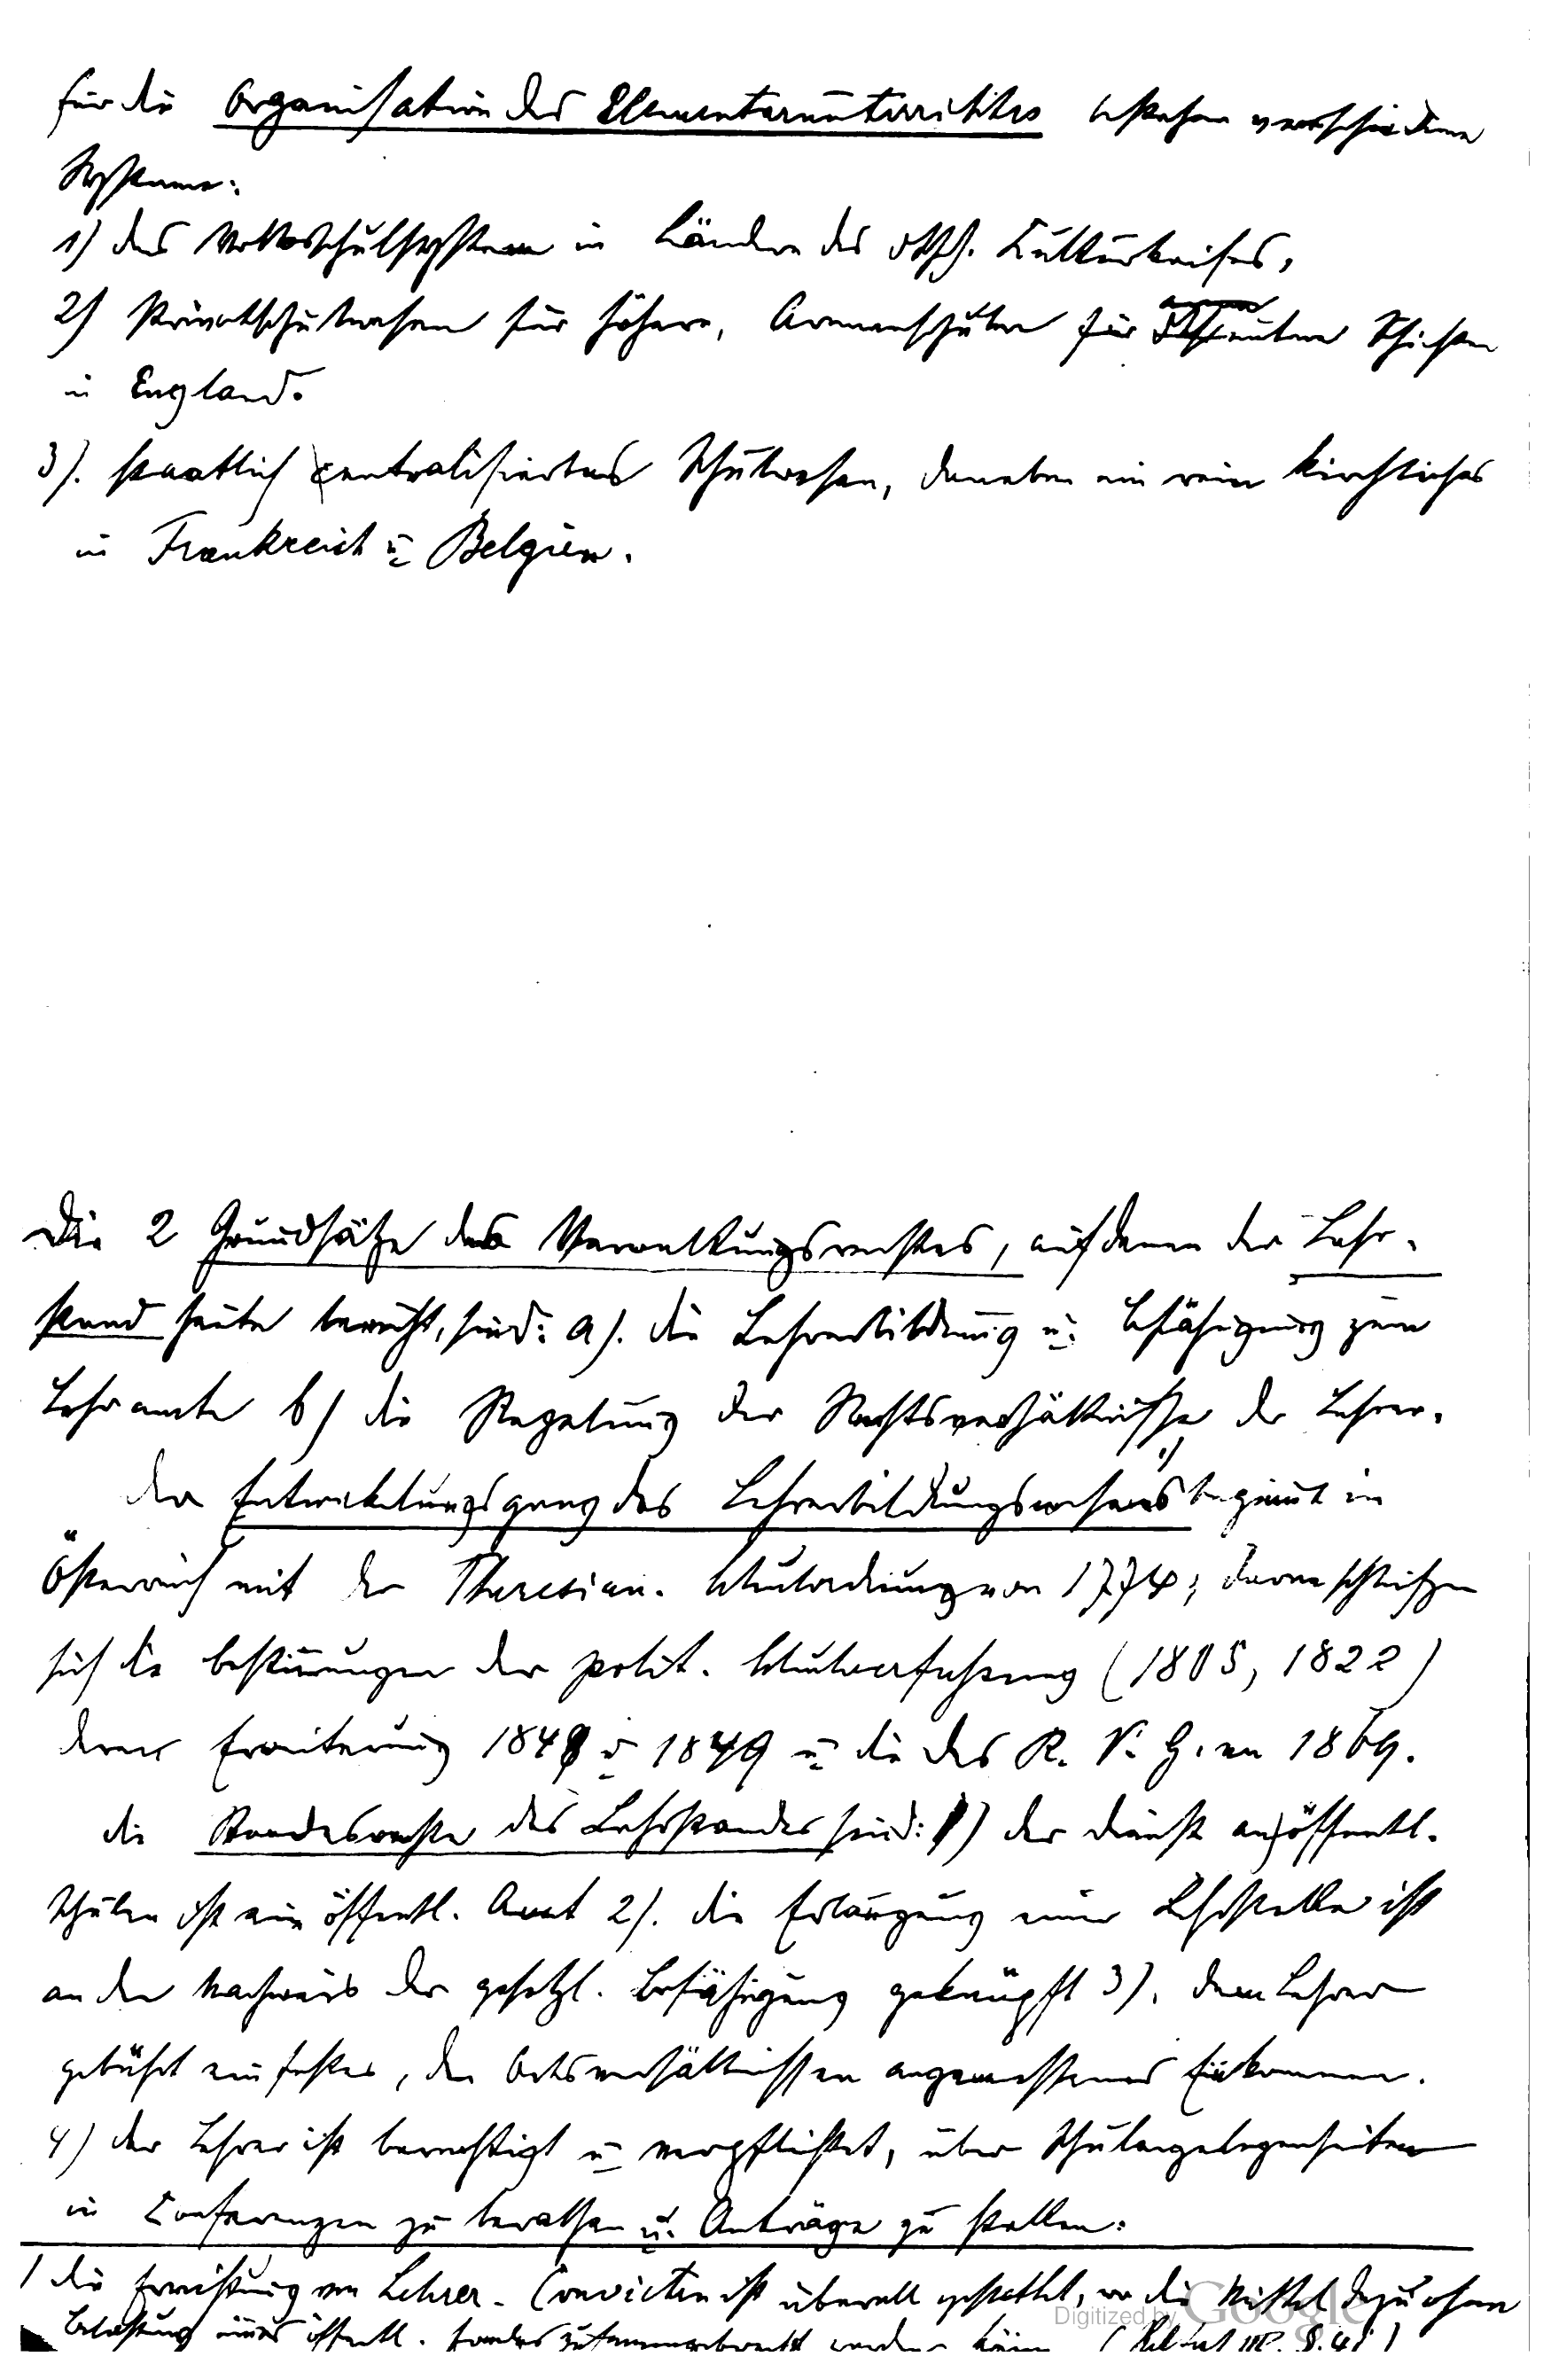 für die Organisation des Elementarunterrichtes bestehen verschiedene
Systeme:
1) das Volksschulsystem in Länder des dtsch. Culturkreises,
2) Privatschulwesen für höhere, Armenschulen für untere Schichten
in England.
3). staatlich centralisiertes Schulwesen, daneben ein rein kirchliches
in Frankreich u Belgien.
Die 2 Grundsätze des Verwaltungsrechtes, auf denen der Lehr-
stand heute beruht, sind: a). die Lehrerbildung u. Befähigung zum
Lehramte b) die Regelung der Rechtsverhältnisse der Lehrer.
der Entwickelungsgang des Lehrerbildungswesens 1) beginnt in
Österreich mit der Theresian. Schulordnung von 1774; daran schließen
sich die Bestimungen der polit. Schulverfassung (1805, 1822)
deren Erweiterung 1848 u 1849 u die des R. V. G. von 1869.
die Standesrechte des Lehrstandes sind: 1) der Dienst an öffentl.
Schulen ist ein öffentl. Amt 2). die Erlangung einer Lehrstelle ist
an den Nachweis der gesetzl. Befähigung geknüpft 3). dem Lehrer
gebührt ein festes, den Ortsverhältnissen angemessenes Einkommen.
4) der Lehrer ist berechtigt u verpflichtet, über Schulangelegenheiten
in Conferenzen zu berathen u. Anträge zu stellen.
1 die Errichtung von Lehrer-Convicten ist überall gestattet, wo die Mittel dazu ohne
Belastung eines öffentl. Fondes zusammengebracht werden können
Digitized by Google